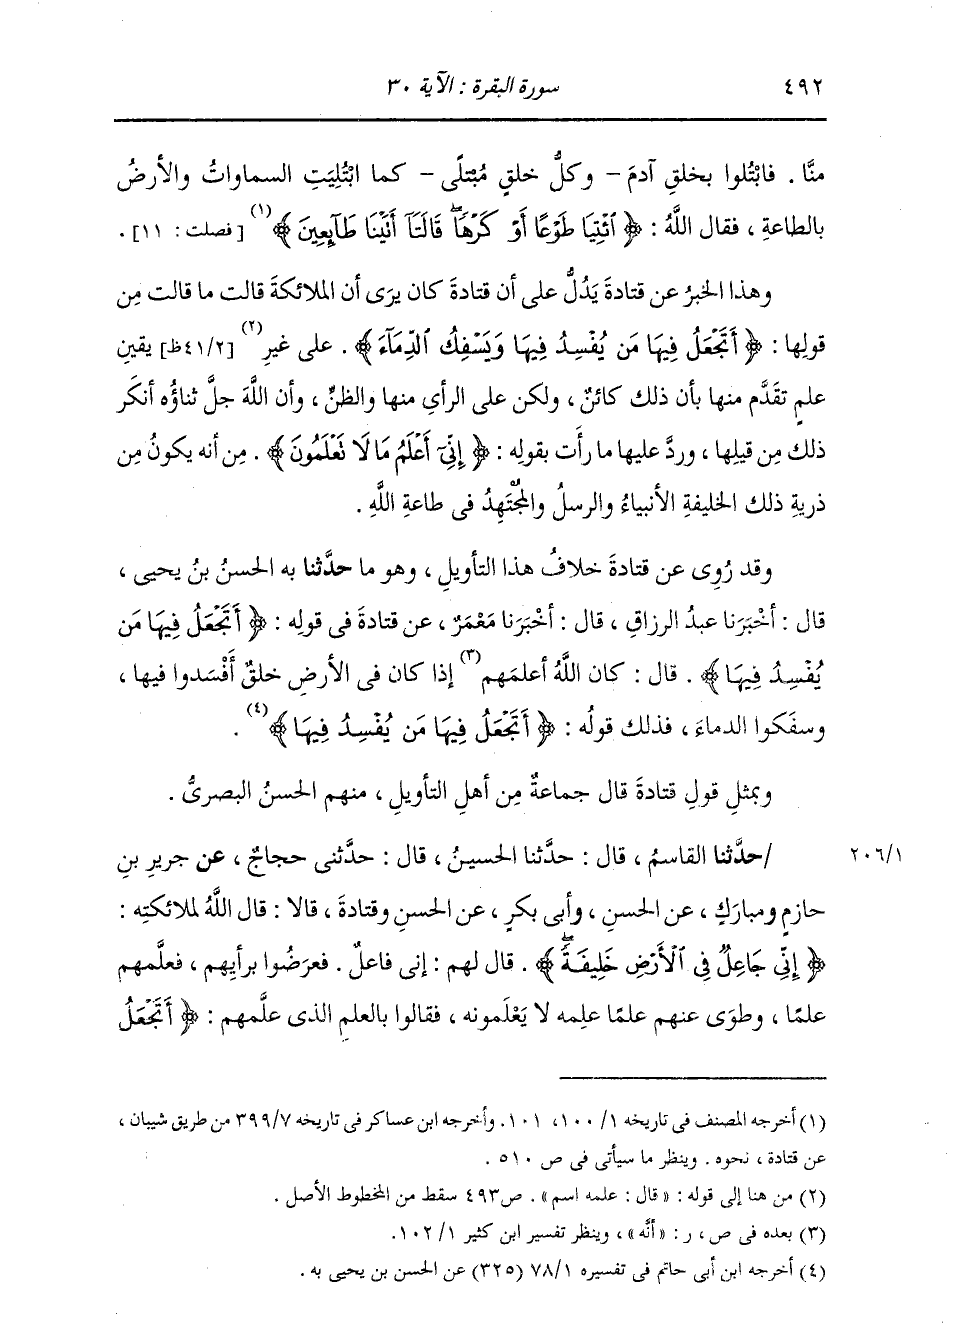 ٤٩٢ سورة البقرة : الآية ٣٠
منَّا . فابْتُلوا بخلقِ آدمَ - وكلُّ خلقٍ مُبْتلًى - كما ابْتُلِيَتِ السماواتُ والأرضُ
بالطاعةِ ، فقال اللَّهُ : ﴿ ٱئْتِيَا طَوْعًا أَوْ كَرْهًا ۖ قَالَتَآ أَتَيْنَا طَآئِعِينَ ﴾(١) [فصلت : ١١] .
وهذا الخبرُ عن قتادةَ يَدُلُّ على أن قتادةَ كان يرَى أن الملائكةَ قالت ما قالت مِن
قولِها : ﴿ أَتَجْعَلُ فِيهَا مَن يُفْسِدُ فِيهَا وَيَسْفِكُ ٱلدِّمَآءَ ﴾ . على غيرِ(٢) [٤١/٢ظ] يقينِ
علمٍ تقدَّم منها بأن ذلك كائنٌ ، ولكن على الرأىِ منها والظنِّ ، وأن اللَّهَ جلَّ ثناؤُه أنكَر
ذلك مِن قيلِها ، وردَّ عليها ما رأَت بقولِه : ﴿ إِنِّىٓ أَعْلَمُ مَا لَا نَعْلَمُونَ ﴾ . مِن أنه يكونُ مِن
ذريةِ ذلك الخليفةِ الأنبياءُ والرسلُ والمُجْتَهِدُ فى طاعةِ اللَّهِ .
وقد رُوِى عن قتادةَ خلافُ هذا التأويلِ ، وهو ما حدَّثنا به الحسنُ بنُ يحيى ،
قال : أخْبَرَنا عبدُ الرزاقِ ، قال : أخْبَرَنا مَعْمَرٌ ، عن قتادةَ فى قولِه : ﴿ أَتَجْعَلُ فِيهَا مَن
يُفْسِدُ فِيهَا ﴾ . قال : كان اللَّهُ أعلَمَهم(٣) إذا كان فى الأرضِ خلقٌ أَفْسَدوا فيها ،
وسفَكوا الدماءَ ، فذلك قولُه : ﴿ أَتَجْعَلُ فِيهَا مَن يُفْسِدُ فِيهَا ﴾(٤) .
وبمثلِ قولِ قتادةَ قال جماعةٌ مِن أهلِ التأويلِ ، منهم الحسنُ البصرىُّ .
٢٠٦/١ /حدَّثنا القاسمُ ، قال : حدَّثنا الحسينُ ، قال : حدَّثنى حجاجٌ ، عن جريرِ بنِ
حازمٍ ومباركٍ ، عن الحسنِ ، وأبى بكرٍ ، عن الحسنِ وقتادةَ ، قالا : قال اللَّهُ لملائكتِه :
﴿ إِنِّى جَاعِلٌ فِى ٱلْأَرْضِ خَلِيفَةً ۖ ﴾ . قال لهم : إنى فاعلٌ . فعرَضُوا برأيِهم ، فعلَّمهم
علمًا ، وطوَى عنهم علمًا علِمه لا يَعْلَمونه ، فقالوا بالعلمِ الذى علَّمهم : ﴿ أَتَجْعَلُ
(١) أخرجه المصنف فى تاريخه ١/ ١٠٠، ١٠١. وأخرجه ابن عساكر فى تاريخه ٣٩٩/٧ من طريق شيبان ،
عن قتادة ، نحوه . وينظر ما سيأتى فى ص ٥١٠ .
(٢) من هنا إلى قوله : «قال : علمه اسم» . ص٤٩٣ سقط من المخطوط الأصل .
(٣) بعده فى ص ، ر : «أنَّه» ، وينظر تفسير ابن كثير ١/ ١٠٢.
(٤) أخرجه ابن أبى حاتم فى تفسيره ٧٨/١ (٣٢٥) عن الحسن بن يحيى به .